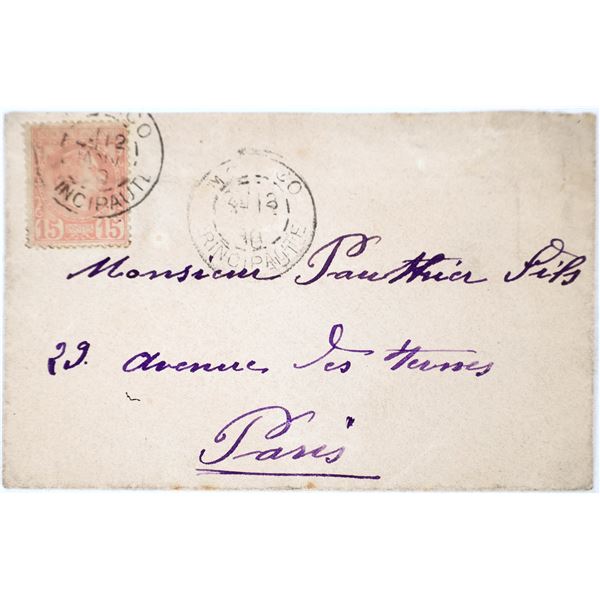 15 15
MONACO
PRINCIPAUTÉ
Monsieur Pauthier Fils
29. avenue des ternes
Paris